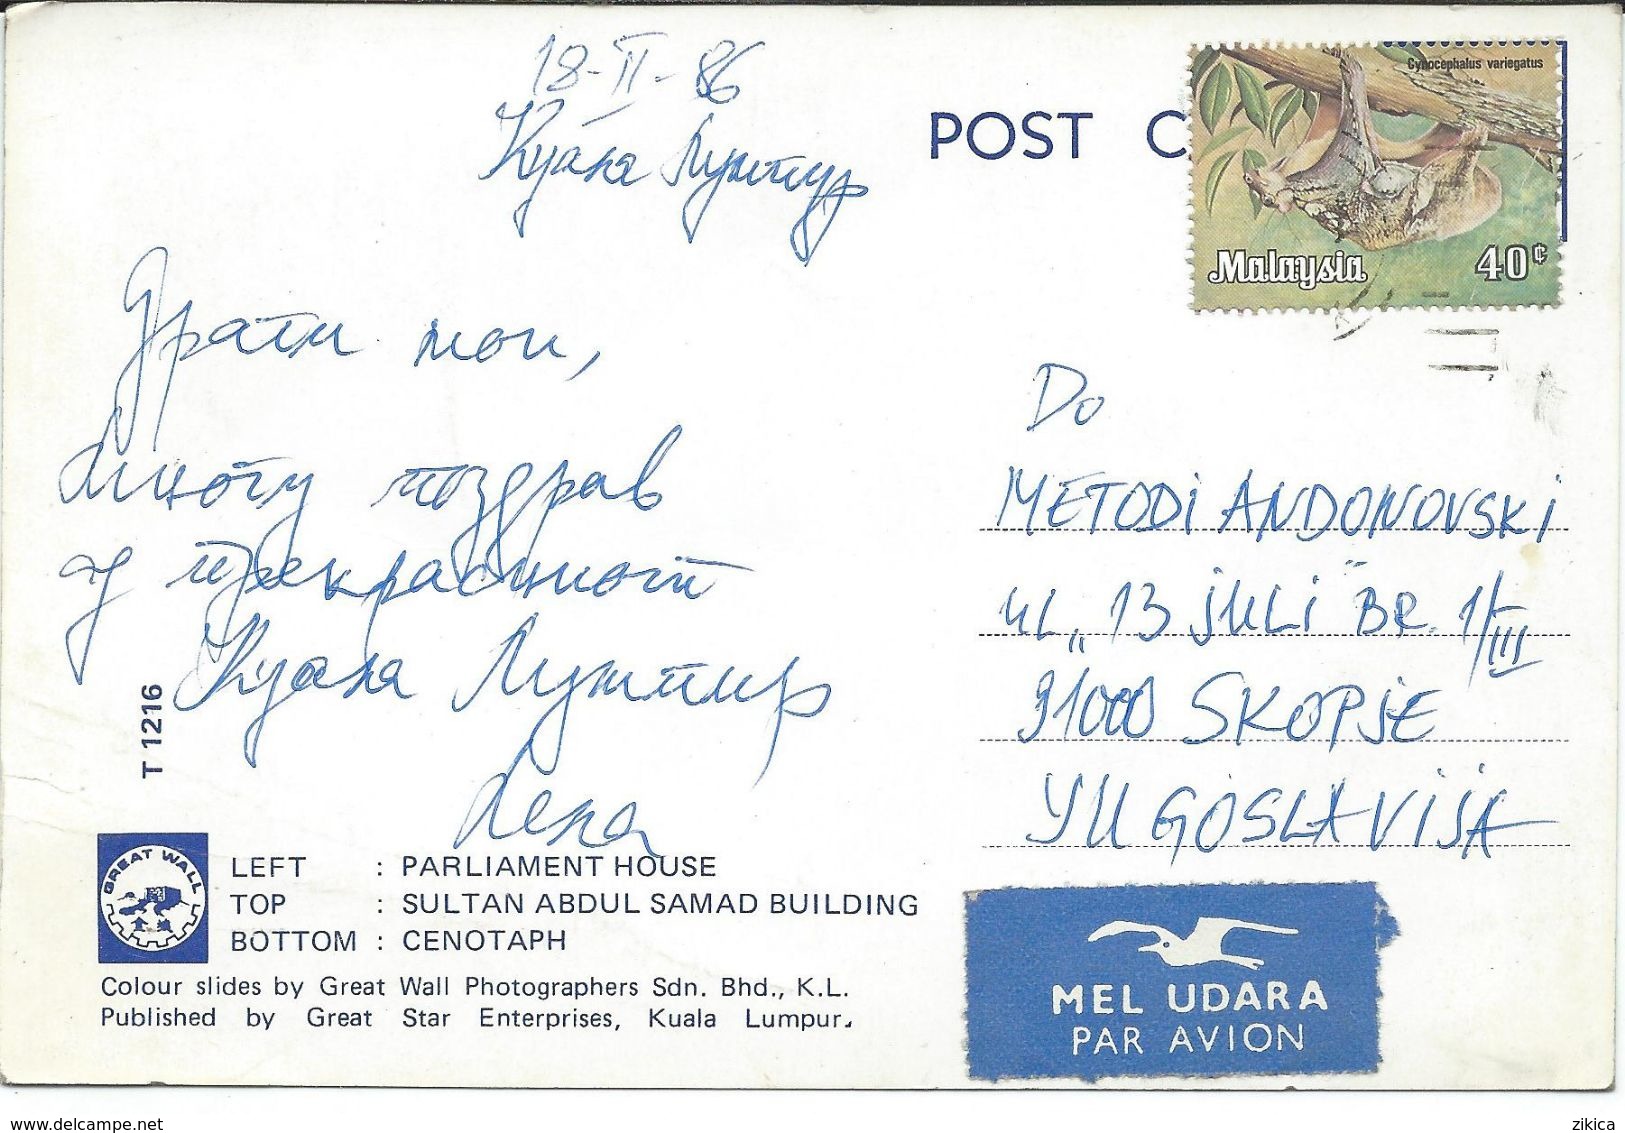 18-II-86
Куала Лумпур
POST C
Cynocephalus variegatus
Malaysia 40¢
Драги мои,
Многу поздрав
од прекрасниот
Куала Лумпур
Лена
Do
METODI ANDONOVSKI
UL „13 JULI" BR. 1/III
91000 SKOPJE
YUGOSLAVIJA
T 1216
GREAT WALL
LEFT : PARLIAMENT HOUSE
TOP : SULTAN ABDUL SAMAD BUILDING
BOTTOM : CENOTAPH
Colour slides by Great Wall Photographers Sdn. Bhd., K.L.
Published by Great Star Enterprises, Kuala Lumpur.
MEL UDARA
PAR AVION
www.delcampe.net
zikica